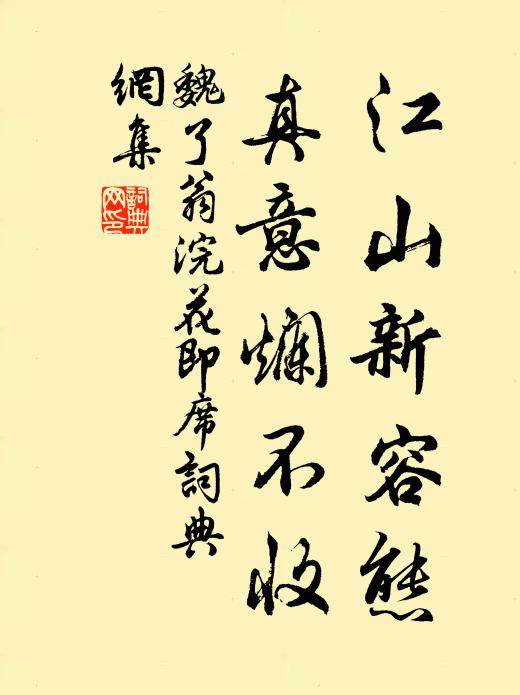 江山新容態
真意爛不收
魏了翁浣花即席詞典
網集
詞典網印